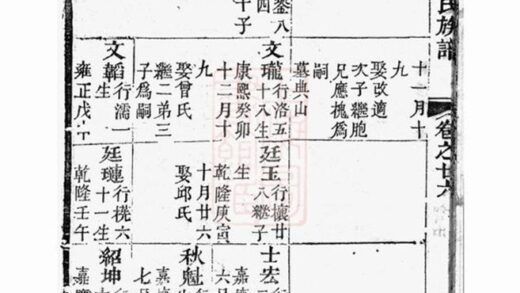 氏族譜
卷之廿六
十一月十
九
娶改適
次子繼胞
兄應槐爲
嗣
墓典山
文瓏行洛五
十八生
康熙癸卯
十二月十
九
娶曾氏
繼二第三
子爲嗣
行濡一
生
雍正戊午
廷玉行櫰廿
八繼子
生
乾隆庚寅
十月廿六
娶邱氏
廷璉行桄六
十一生
乾隆壬午
士宏行
秋魁
紹坤